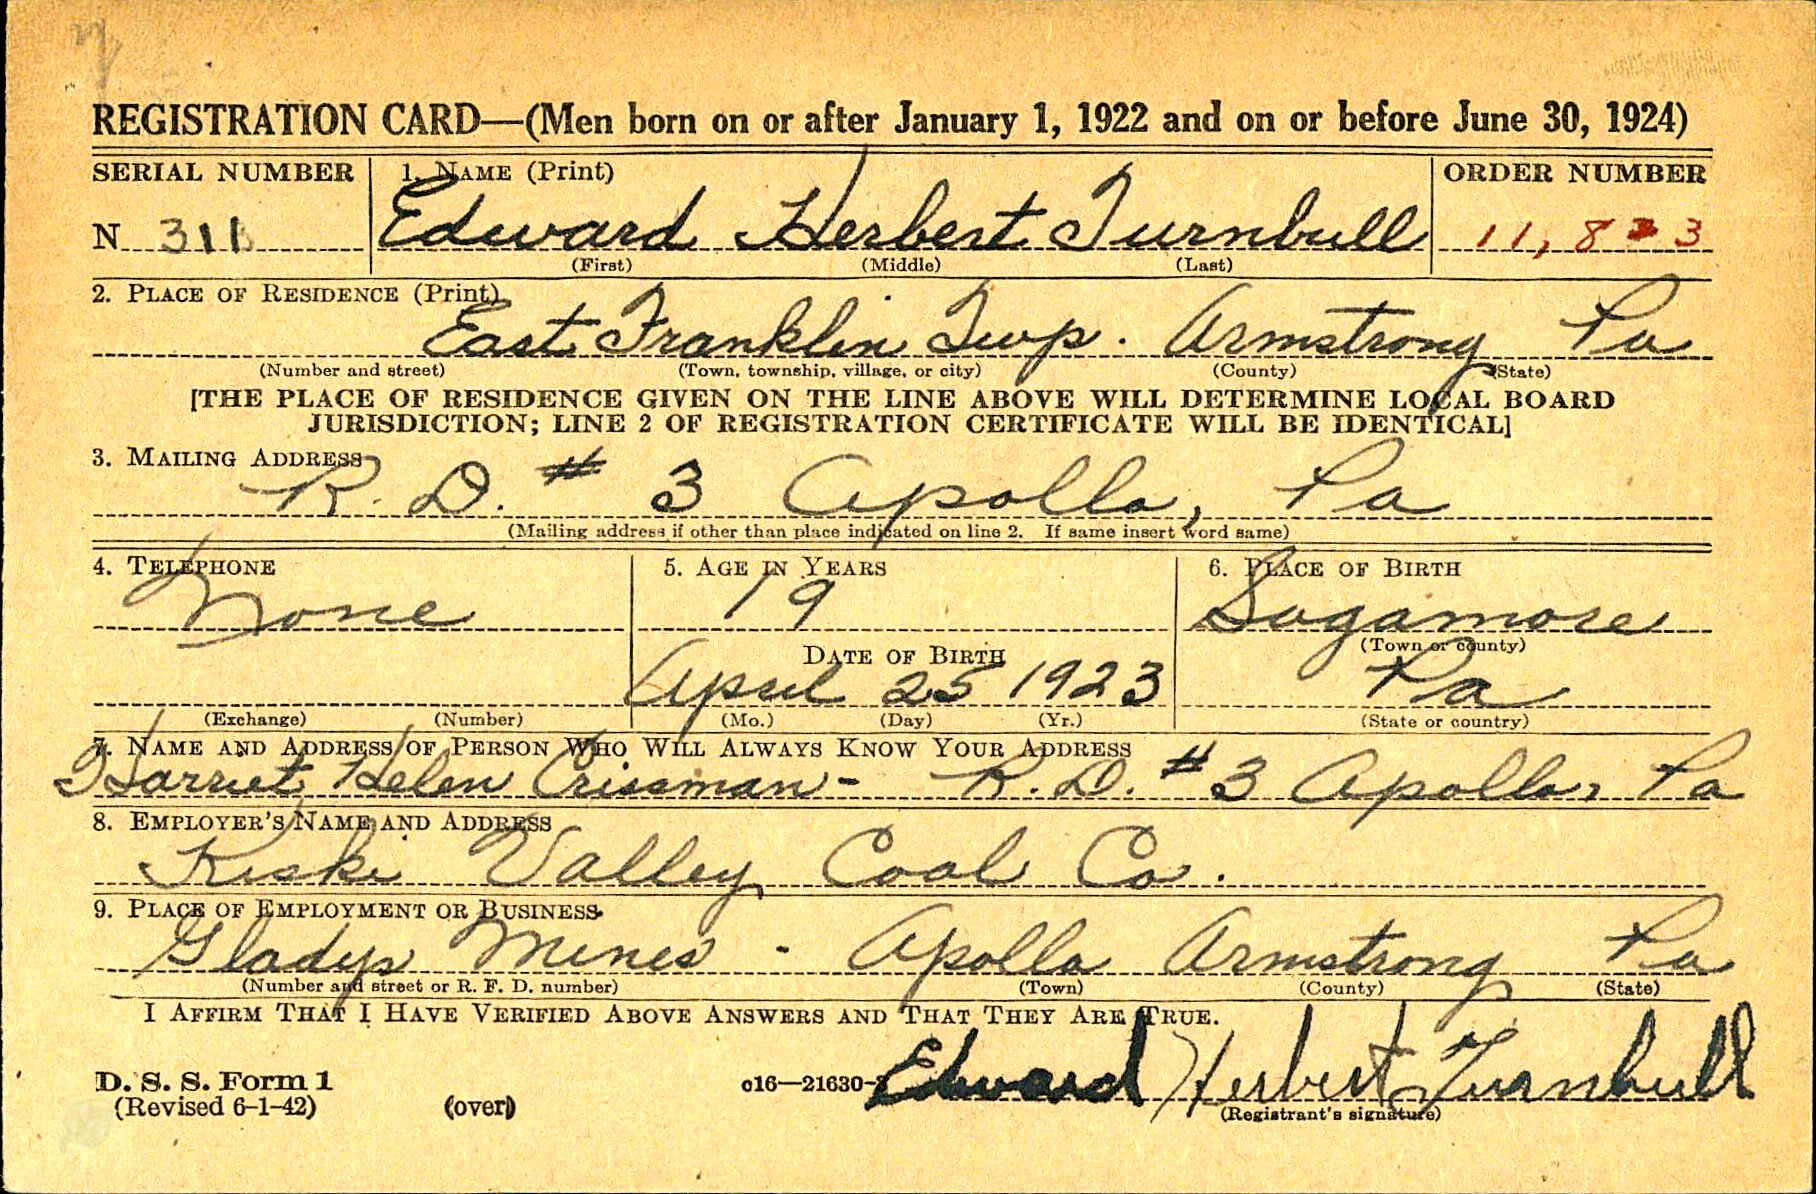 REGISTRATION CARD—(Men born on or after January 1, 1922 and on or before June 30, 1924)
SERIAL NUMBER 1. NAME (Print) ORDER NUMBER
N 311 Edward Herbert Turnbull 11,8 3
(First) (Middle) (Last)
2. PLACE OF RESIDENCE (Print)
East Franklin Twp. Armstrong Pa
(Number and street) (Town, township, village, or city) (County) (State)
[THE PLACE OF RESIDENCE GIVEN ON THE LINE ABOVE WILL DETERMINE LOCAL BOARD
JURISDICTION; LINE 2 OF REGISTRATION CERTIFICATE WILL BE IDENTICAL]
3. MAILING ADDRESS
R. D. # 3 Apollo, Pa
(Mailing address if other than place indicated on line 2. If same insert word same)
4. TELEPHONE 5. AGE IN YEARS 6. PLACE OF BIRTH
None 19 Sagamore
(Town or county)
DATE OF BIRTH
April 25 1923 Pa
(Exchange) (Number) (Mo.) (Day) (Yr.) (State or country)
7. NAME AND ADDRESS OF PERSON WHO WILL ALWAYS KNOW YOUR ADDRESS
Harriet Helen Crissman - R. D. # 3 Apollo, Pa
8. EMPLOYER'S NAME AND ADDRESS
Kiski Valley Coal Co.
9. PLACE OF EMPLOYMENT OR BUSINESS
Gladys Mines - Apollo Armstrong Pa
(Number and street or R. F. D. number) (Town) (County) (State)
I AFFIRM THAT I HAVE VERIFIED ABOVE ANSWERS AND THAT THEY ARE TRUE.
D. S. S. Form 1 c16—21630-2 Edward Herbert Turnbull
(Revised 6-1-42) (over) (Registrant's signature)